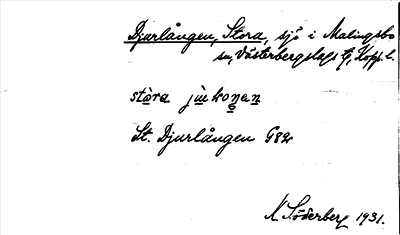 Djurlången, Stora, sjö i Malingsbo
sn, Västerbergslags tg, Kopp. l.
stòra jùkonan
St. Djurlången G82
N. Söderberg 1931.